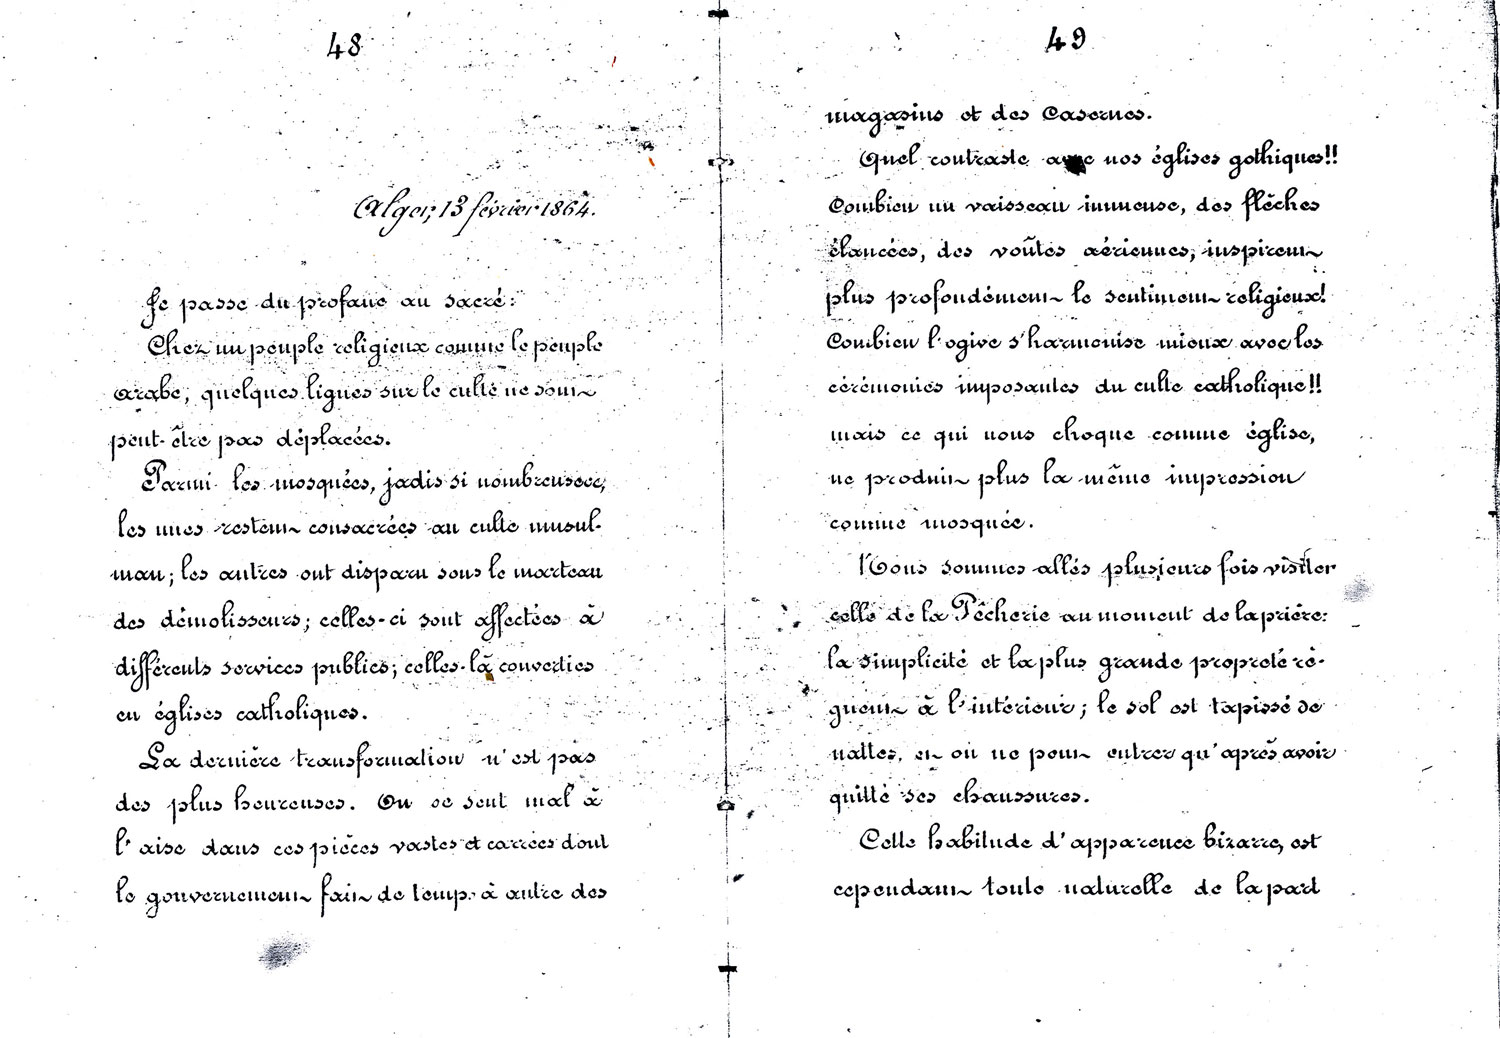 48
Alger, 13 février 1864.
Je passe du profane au sacré:
Chez un peuple religieux comme le peuple
arabe, quelques lignes sur le culte ne sont
peut-être pas déplacées.
Parmi les mosquées, jadis si nombreuses,
les unes restent consacrées au culte musul-
man; les autres ont disparu sous le marteau
des démolisseurs; celles-ci sont affectées à
différents services publics; celles-là converties
en églises catholiques.
La dernière transformation n'est pas
des plus heureuses. On se sent mal à
l'aise dans ces pièces vastes et carrées dont
le gouvernement fait de temp. à autre des
49
magasins et des Casernes.
Quel contraste avec nos églises gothiques!!
Combien un vaisseau immense, des flèches
élancées, des voûtes aériennes, inspirent
plus profondément le sentiment religieux!
Combien l'ogive s'harmonise mieux avec les
cérémonies imposantes du culte catholique!!
mais ce qui nous choque comme église,
ne produit plus la même impression
comme mosquée.
Nous sommes allés plusieurs fois visiter
celle de la Pêcherie au moment de la prière:
la simplicité et la plus grande propreté rè-
gnent à l'intérieur; le sol est tapissé de
nattes, et on ne peut entrer qu'après avoir
quitté ses chaussures.
Cette habitude d'apparence bizarre, est
cependant toute naturelle de la part